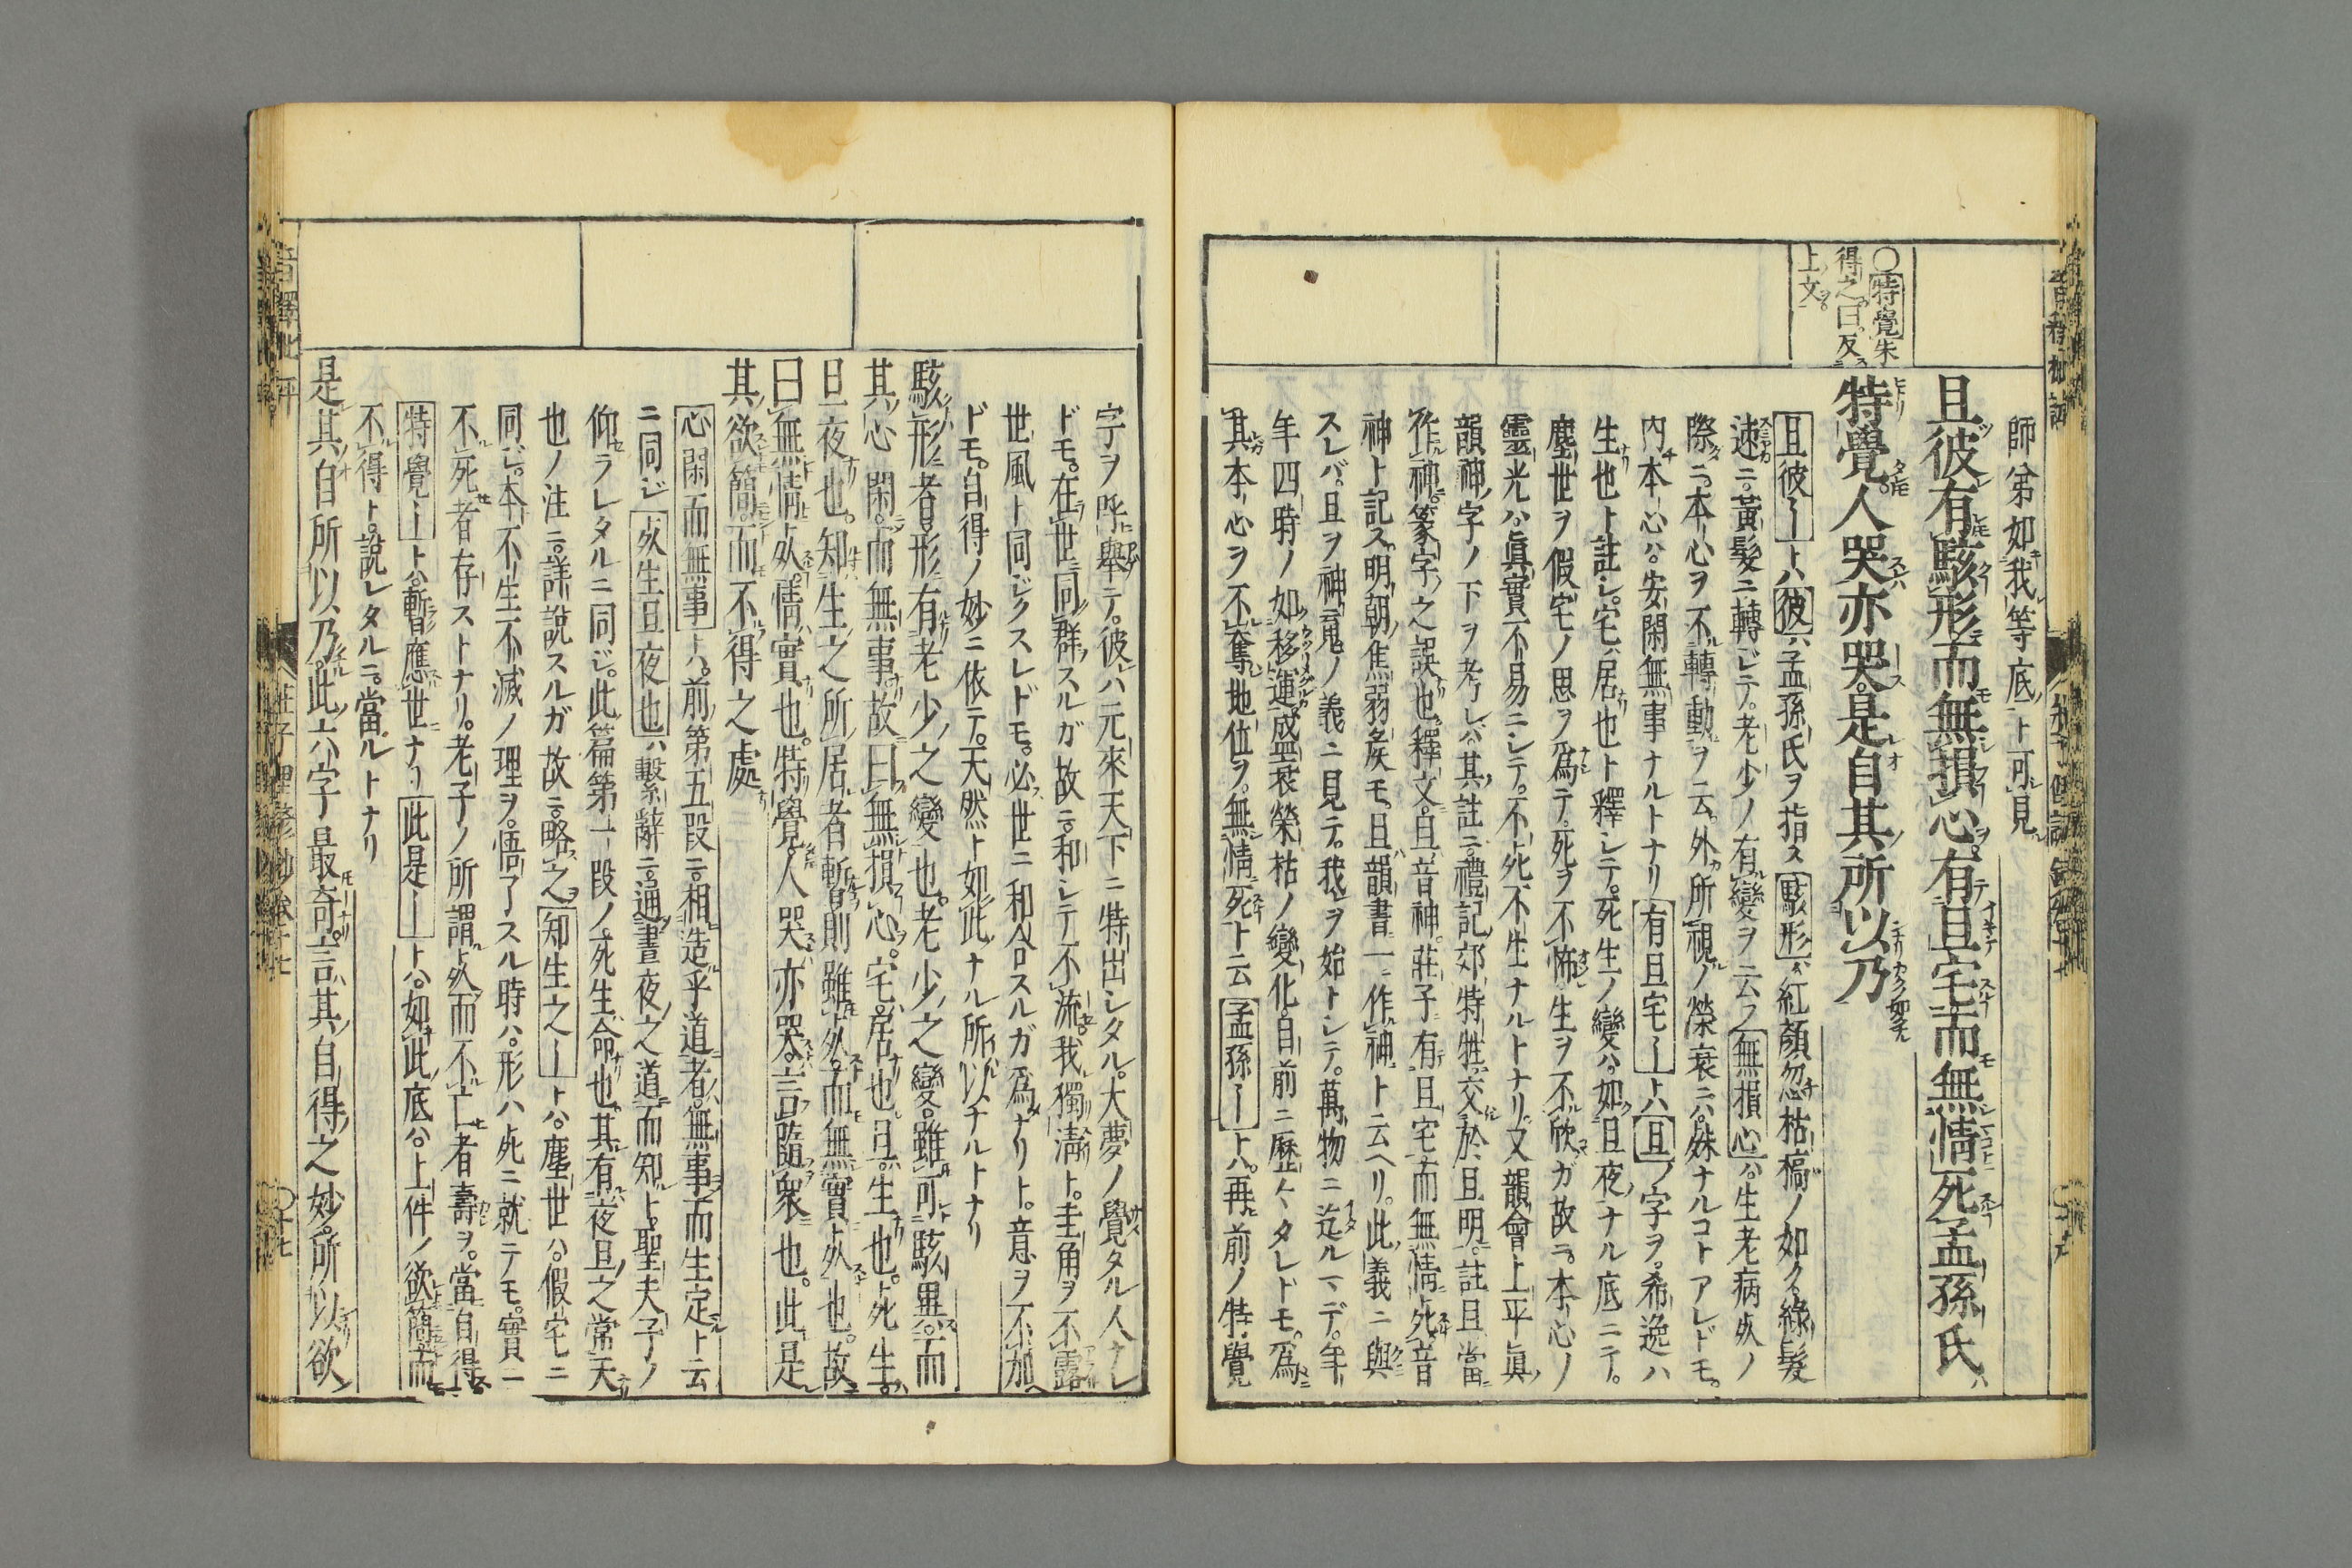 ○特覺朱
得之曰反
上文
師弟如我等底ト可見
且彼有駭形而無損心有且宅而無情死孟孫氏
特覺人哭亦哭是自其所以乃
且彼ーートハ彼ハ孟孫氏ヲ指ス駭形ハ紅顏忽枯槁ノ如ク綠髮
速ニ黃髮ニ轉ジテ老少ノ有變ヲ云フ無損心ハ生老病死ノ
際ニ本心ヲ不轉動ヲ云外所視ノ榮衰ニハ殊ナルコトアレドモ
內本心ハ安閑無事ナルトナリ有且宅ーートハ且ノ字ヲ希逸ハ
生也ト註シ宅ハ居也ト釋シテ死生ノ變ハ如且夜ナル底ニテ
塵世ヲ假宅ノ思ヲ爲テ死ヲ不怖生ヲ不欣ガ故ニ本心ノ
靈光ハ眞實不易ニシテ不死不生ナルトナリ又韻會上平眞
韻神字ノ下ヲ考レバ其註ニ禮記郊特牲交於且明註且當
作神篆字之誤也釋文且音神莊子有且宅而無情死音
神ト記ス明朝焦弱矦モ且韻書一作神ト云ヘリ此義ニ與
スレバ且ヲ神寬ノ義ニ見テ我ヲ始トシテ萬物ニ迄ルマデ年
年四時ノ如移運盛衰榮枯ノ變化目前ニ歷々タレドモ爲
其本心ヲ不奪地位ヲ無情死ト云孟孫ーートハ再前ノ特覺
字ヲ呼舉テ彼ハ元來天下ニ特出シタル大夢ノ覺タル人ナレ
ドモ在世同群スルガ故ニ和シテ不流我獨淸ト圭角ヲ不露
世風ト同ジクスレドモ必世ニ和合スルガ爲ナリト意ヲ不加
ドモ自得ノ妙ニ依テ天然ト如此ナル所以ナルトナリ
駭形者形有老少之變也老少之變雖可駭異而
其心閑而無事故曰無損心宅居也且生也死生
旦夜也知生之所居者暫則雖死而無實死也故
曰無情死情實也特覺人哭亦哭言隨衆也此是
其欲簡而不得之處
心閑而無事トハ前第五段ニ相造乎道者無事而生定ト云
ニ同ジ死生旦夜也ハ繫辭ニ通晝夜之道而知ト聖夫子ノ
仰ラレタルニ同ジ此篇第一段ノ死生命也其有夜旦之常天
也ノ注ニ詳說スルガ故ニ略之知生之ーートハ塵世ハ假宅ニ
同ジ本不生不滅ノ理ヲ悟了スル時ハ形ハ死ニ就テモ實ニ
不死者存ストナリ老子ノ所謂死而不亡者壽ヲ當自得
特覺ーートハ暫應世ナリ此是ーートハ如此底ハ上件ノ欲簡而
不得ト說レタルニ當ルトナリ
是其自所以乃此六字最奇言其自得之妙所以欲